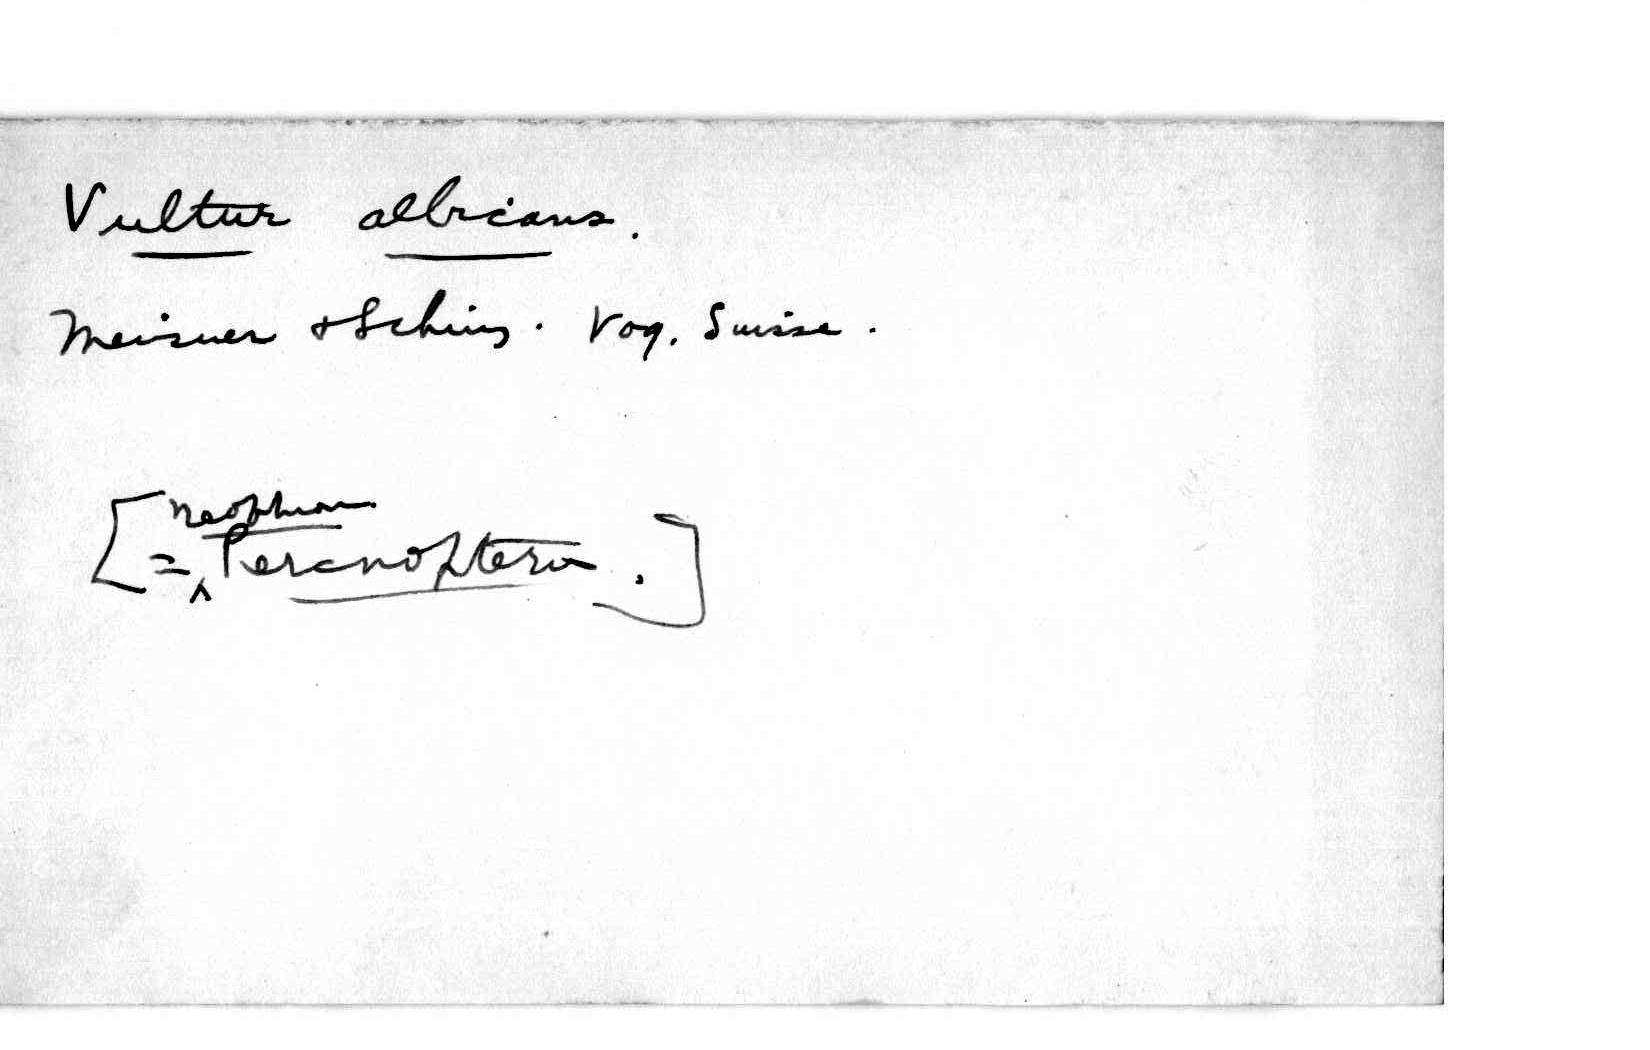 Vultur albicans.
Meisner & Schinz. Vog. Suisse.
[= Neophron Percnopterus.]